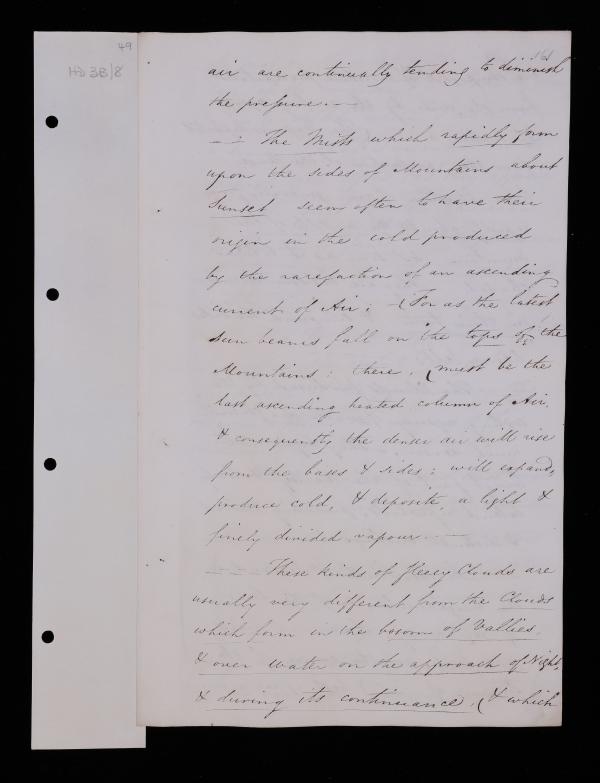 49
HD 3B/8
air are continually tending to diminish
the pressure. —
— : The Mists which rapidly form
upon the sides of Mountains about
Sunset seem often to have their
origin in the cold produced
by the rarefaction of an ascending
current of Air; — (For as the latest
sun beams fall on the tops of the
Mountains: there, (must be the
last ascending heated column of Air,
& consequently the denser air will rise
from the bases & sides; will expand,
produce cold, & deposite, a light &
finely divided vapour. —
— — These kinds of fleecy Clouds are
usually very different from the Clouds
which form in the bosom of Vallies,
& over water on the approach of Night,
& during its continuance, (& which